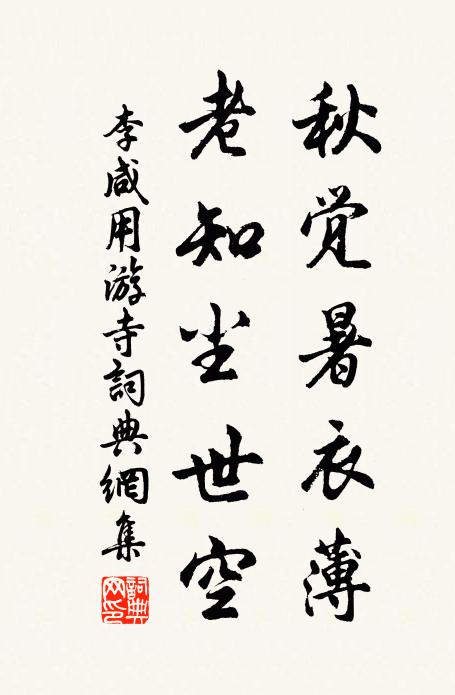 秋觉暑衣薄
老知尘世空
李咸用游寺詞典網集
詞典网印